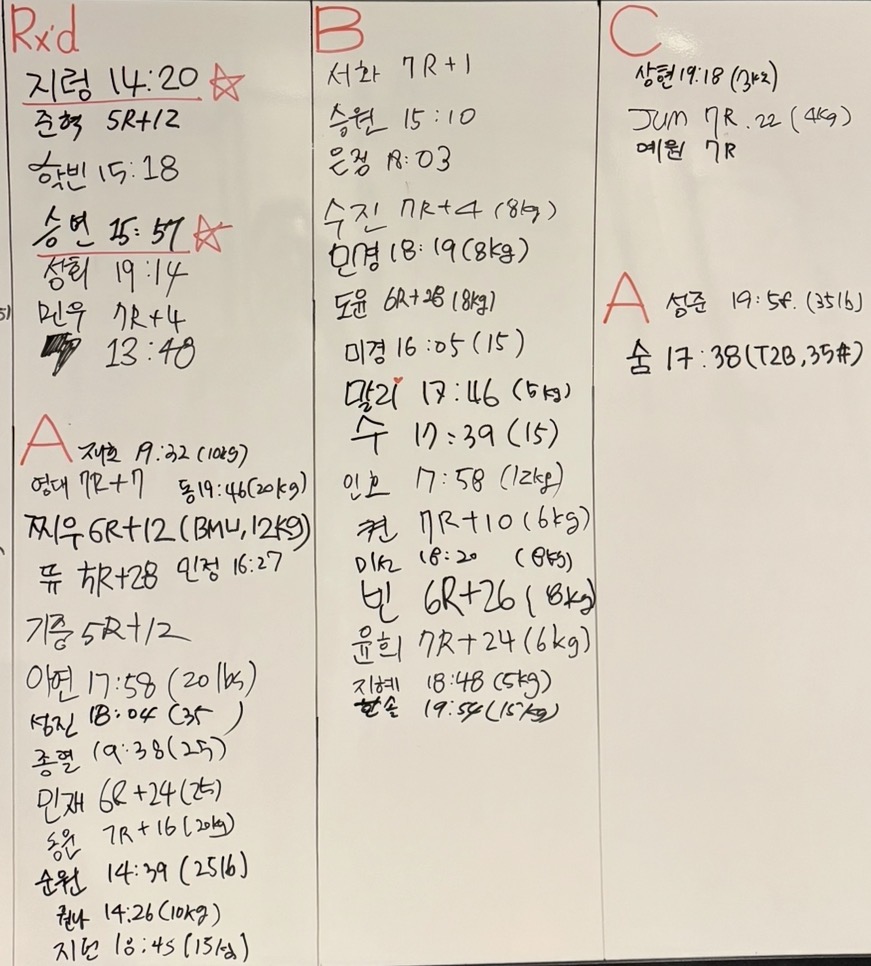 Rx'd
지렁 14:20
준혁 5R+12
학빈 15:18
승변 15:57
성희 19:14
민우 7R+4
13:48
A 재호 19:32 (10kg)
영대 7R+7 동 19:46 (20kg)
찌우 6R+12 (BMU, 12kg)
뜌 5R+28 민정 16:27
기중 5R+12
아연 17:58 (20 lbs)
성진 18:04 (35 )
종열 19:38 (25)
민재 6R+24 (25)
동윤 7R+16 (20kg)
순원 14:39 (25lb)
14:26 (10kg)
18:45 (15kg)
B
서화 7R+1
승원 15:10
은정 18:03
수진 7R+4 (8kg)
민경 18:19 (8kg)
도윤 6R+28 (8kg)
미경 16:05 (15)
말리 17:46 (5kg)
수 17:39 (15)
인호 17:58 (12kg)
켠 7R+10 (6kg)
미선 18:20 (8kg)
빈 6R+26 (8kg)
윤희 7R+24 (6kg)
지혜 18:48 (5kg)
한솔 19:54 (15kg)
C
상현 19:18
JUM 7R.22 (4kg)
예원 7R
A 성준 19:58. (35lb)
숨 17:38 (T2B, 35#)